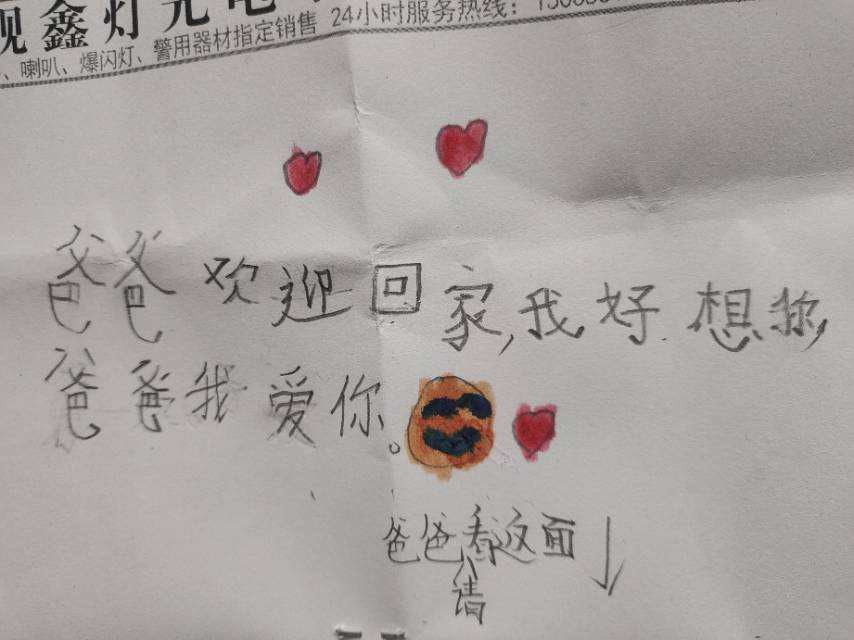 鑫灯光电
喇叭、爆闪灯、警用器材指定销售 24小时服务热线:
爸爸欢迎回家,我好想你,
爸爸我爱你。
爸爸看这面
请